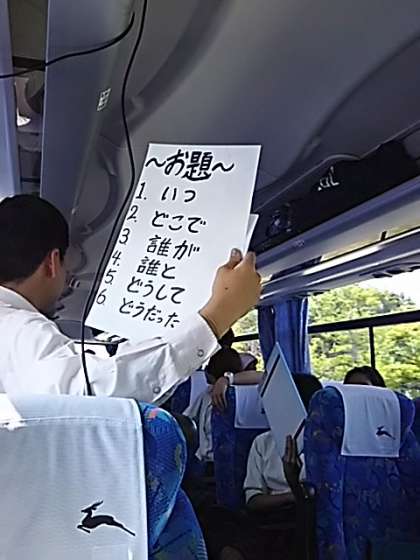 〜お題〜
1. いつ
2. どこで
3. 誰が
4. 誰と
5. どうして
6. どうだった